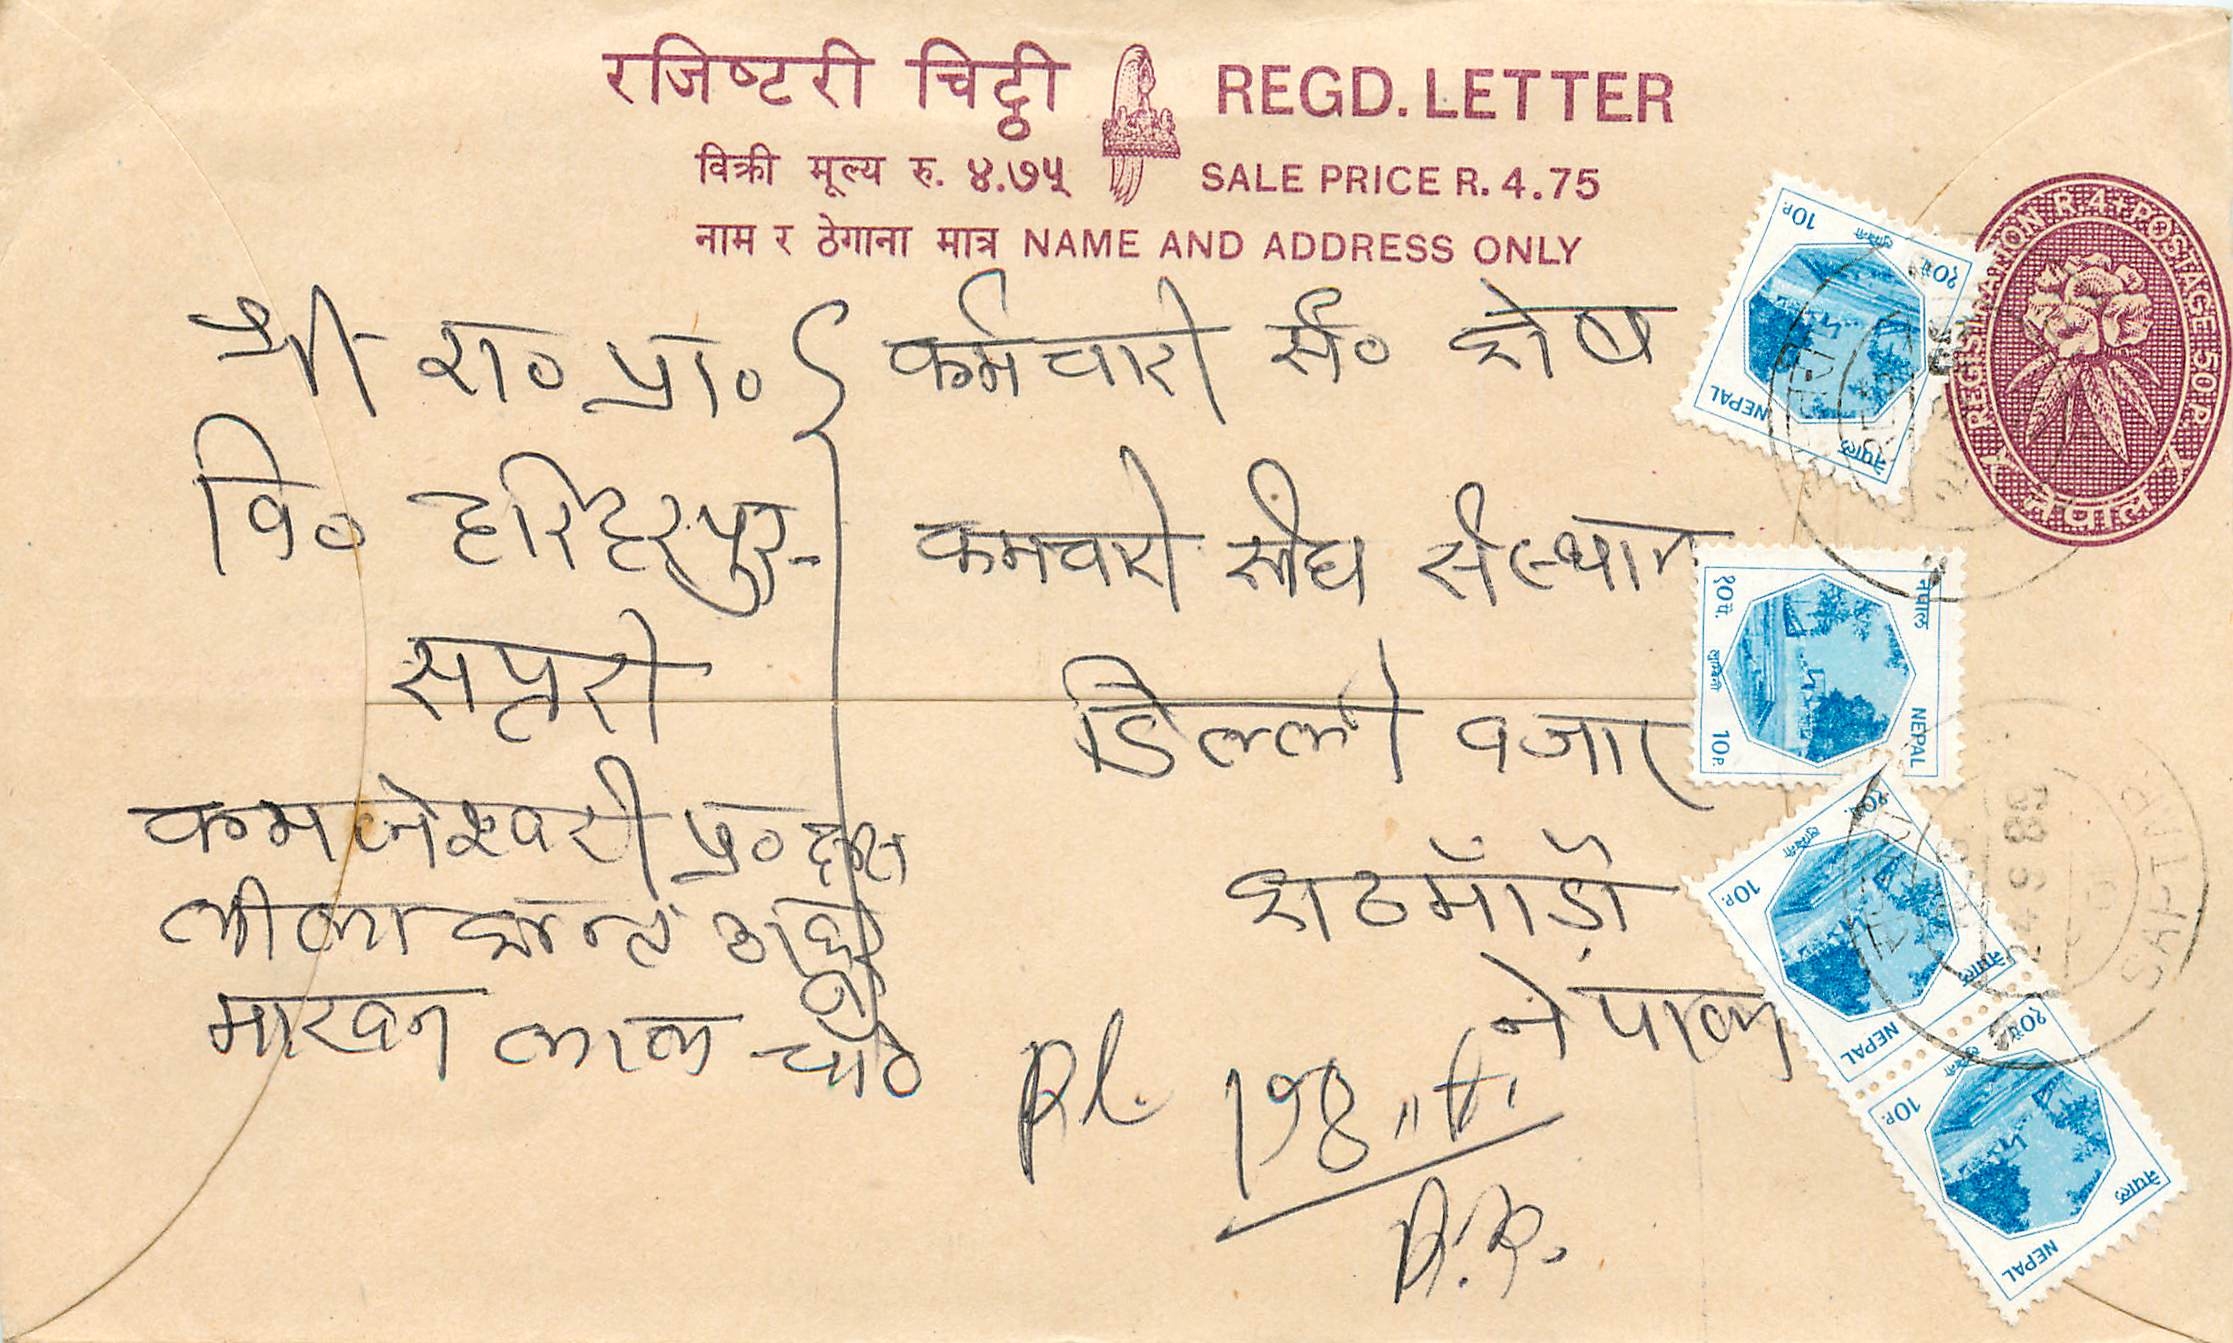 रजिष्टरी चिठ्ठी REGD. LETTER
विक्री मूल्य रु. ४.७५ SALE PRICE R. 4.75
नाम र ठेगाना मात्र NAME AND ADDRESS ONLY
REGISTRATION R.4+POSTAGE 50 P.
नेपाल
श्री रा० प्रा०
वि० हरिहरपुर
सप्तरी
कमलेश्वरी प्र०
माखन लाल
कर्मचारी सं० कोष
कमचारी संस्थान
डिल्ली वजार
काठमाँडौ
नेपाल
Rl. 198
A.R.
10P. लुम्बिनी १०पै.
NEPAL नेपाल
१०पै. लुम्बिनी 10P.
नेपाल NEPAL
१०पै. लुम्बिनी 10P.
नेपाल NEPAL
१०पै. लुम्बिनी 10P.
नेपाल NEPAL
SAPTARI